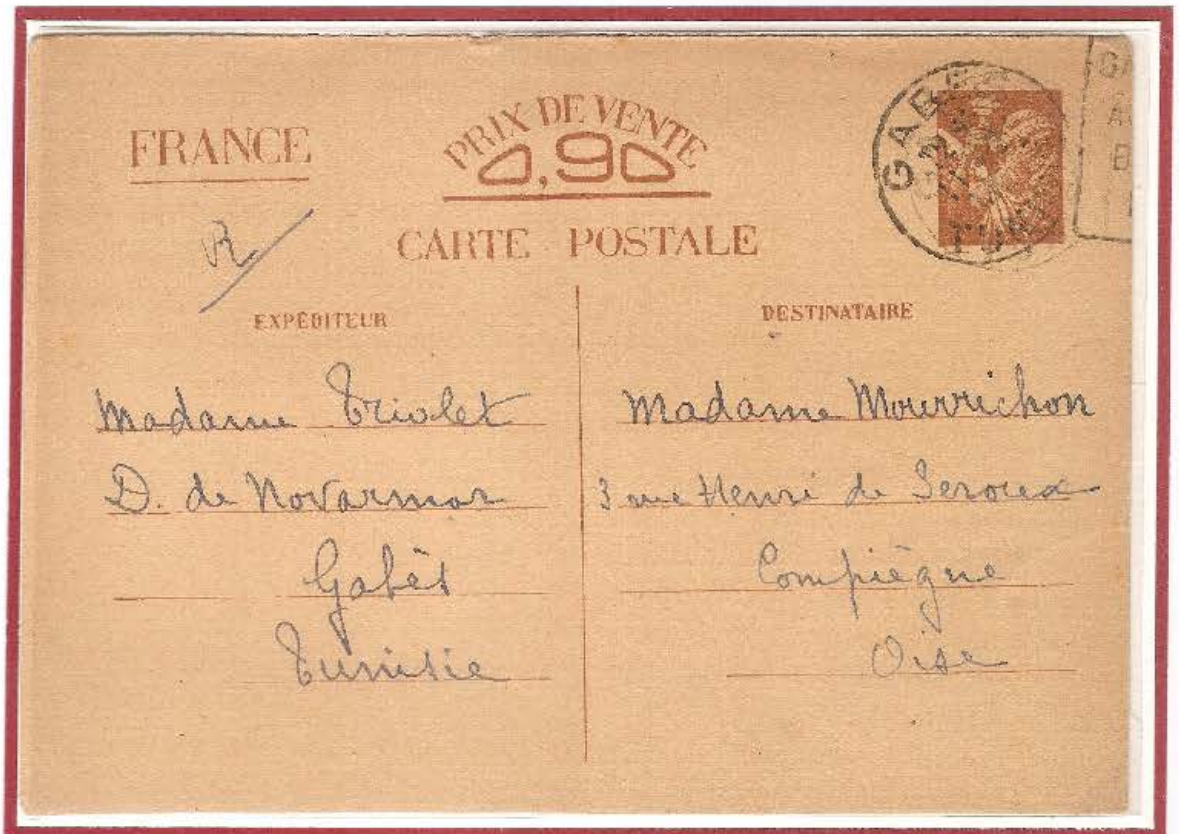 FRANCE
PRIX DE VENTE
0,90
CARTE POSTALE
GABES
TUN
R
EXPÉDITEUR
Madame Triolet
D. de Novarmor
Gabès
Tunisie
DESTINATAIRE
Madame Mourrichon
3 rue Henri de Seroux
Compiègne
Oise